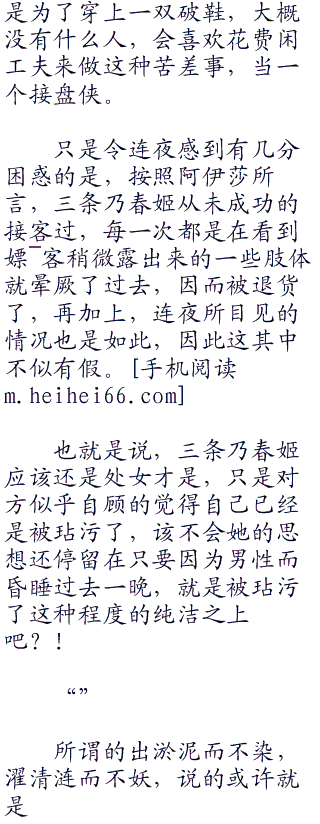 是为了穿上一双破鞋，大概
没有什么人，会喜欢花费闲
工夫来做这种苦差事，当一
个接盘侠。
只是令连夜感到有几分
困惑的是，按照阿伊莎所
言，三条乃春姬从未成功的
接客过，每一次都是在看到
嫖¯客稍微露出来的一些肢体
就晕厥了过去，因而被退货
了，再加上，连夜所目见的
情况也是如此，因此这其中
不似有假。[手机阅读
m.heihei66.com]
也就是说，三条乃春姬
应该还是处女才是，只是对
方似乎自顾的觉得自己已经
是被玷污了，该不会她的思
想还停留在只要因为男性而
昏睡过去一晚，就是被玷污
了这种程度的纯洁之上
吧？!
“”
所谓的出淤泥而不染，
濯清涟而不妖，说的或许就
是